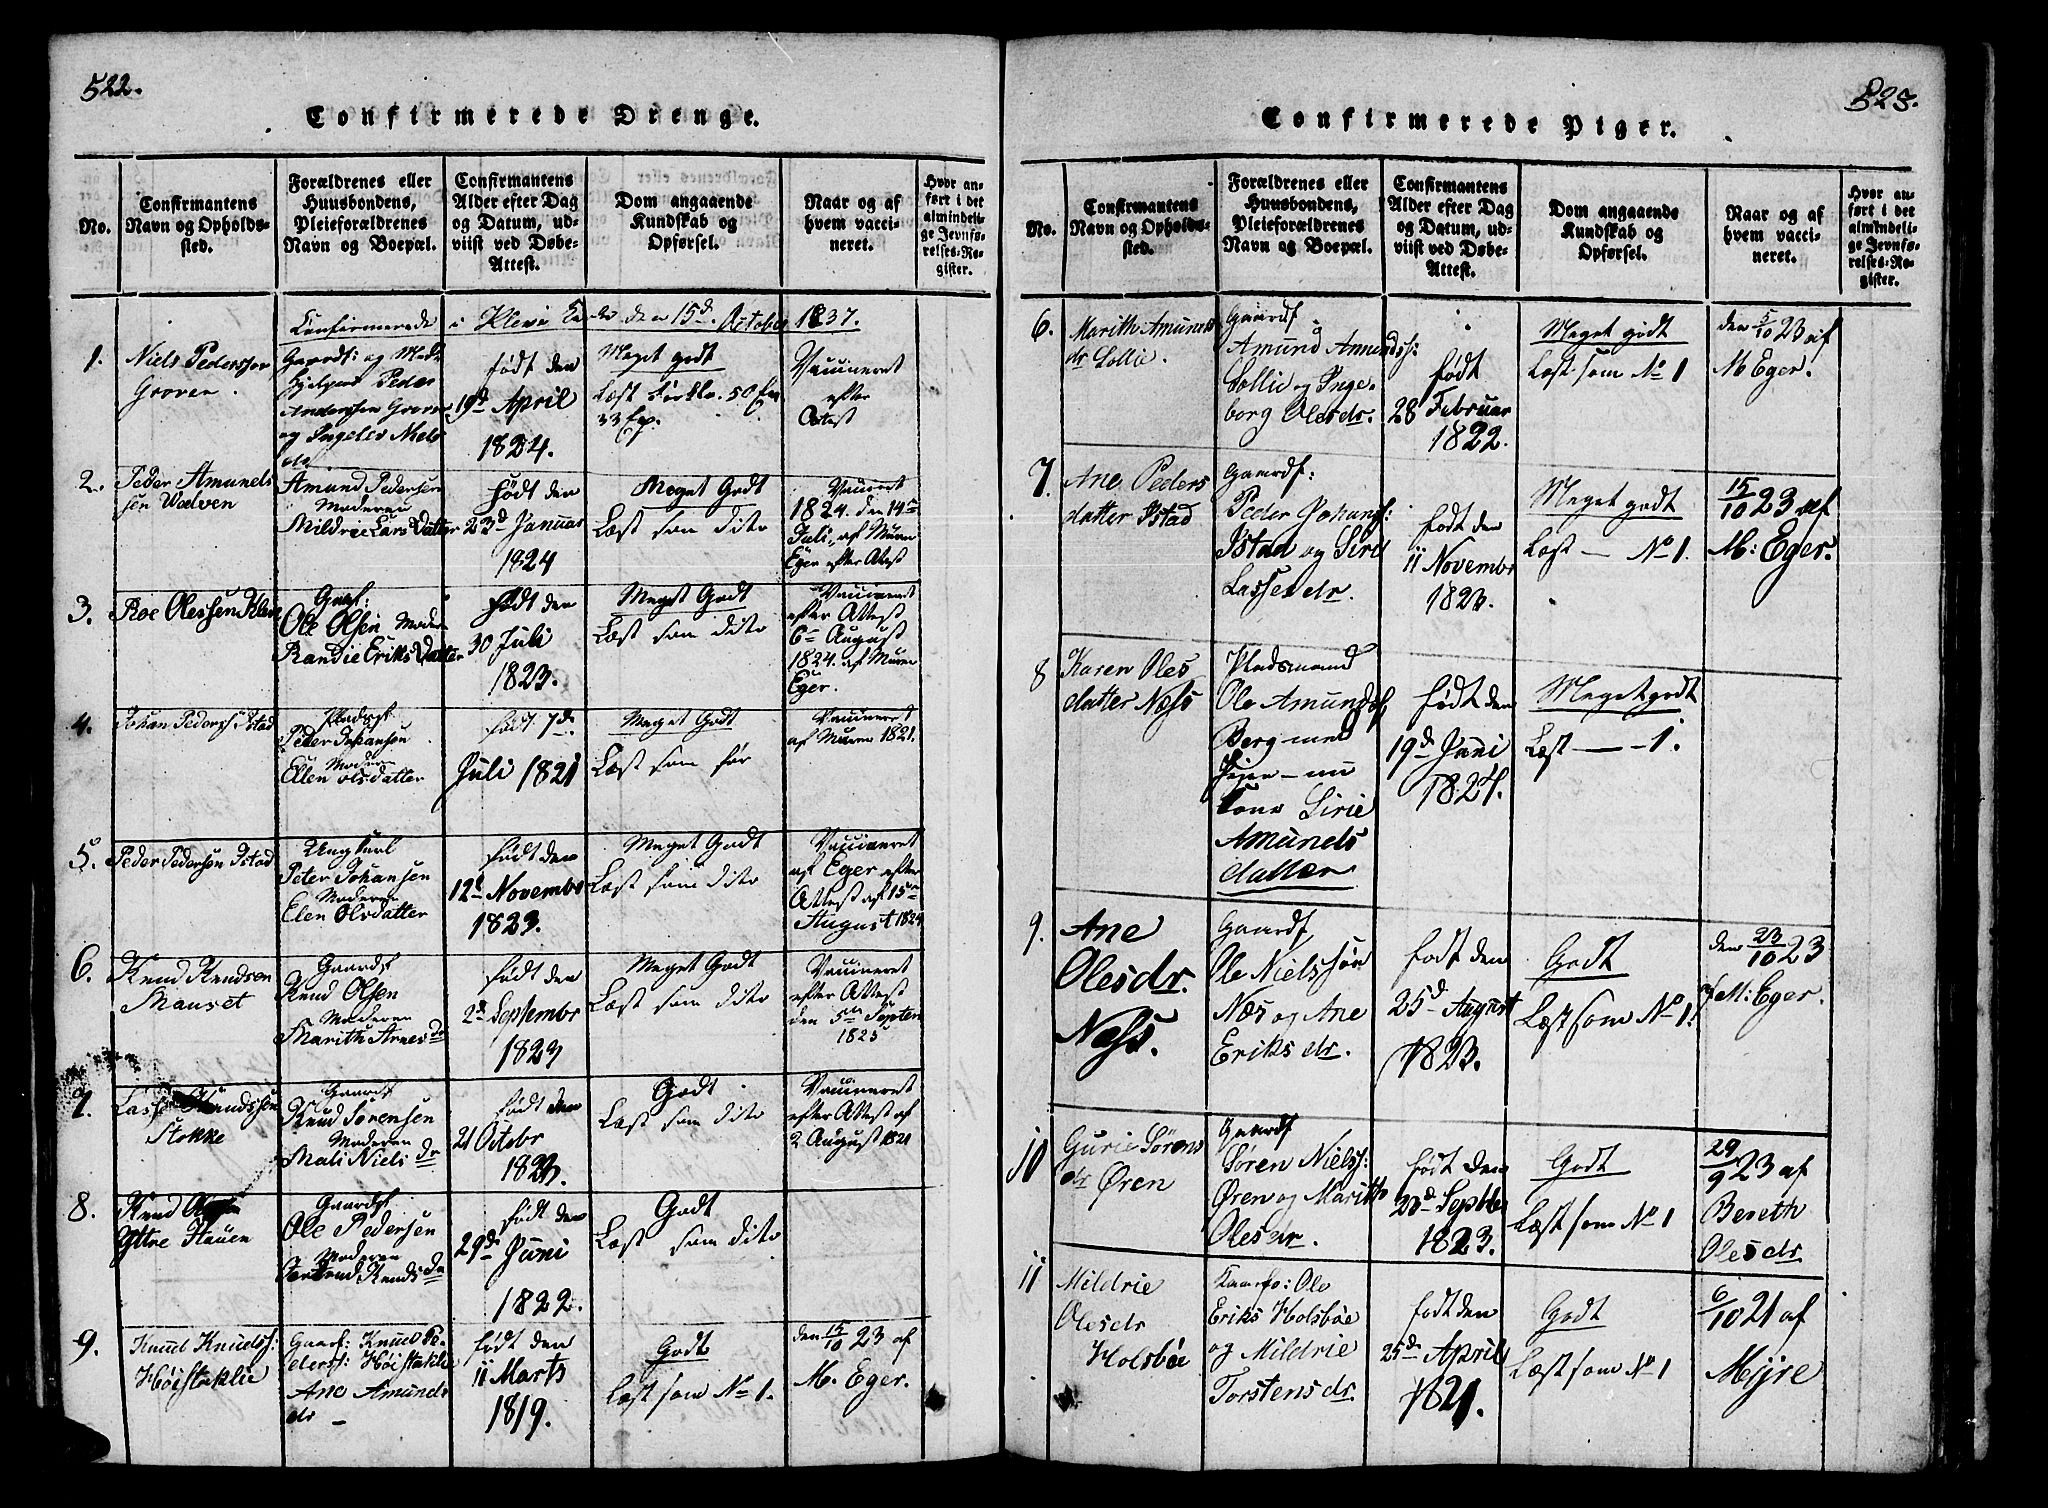 522.
Confirmerede Drenge.
No.
Confirmantens
Navn og Opholds-
sted.
Forældrenes eller
Huusbondens,
Pleieforældrenes
Navn og Boepæl.
Confirmantens
Alder efter Dag
og Datum, ud-
viist ved Døbe-
Attest.
Dom angaaende
Kundskab og
Opførsel.
Naar og af
hvem vacci-
neret.
Hvor an-
ført i det
almindeli-
ge Jevnfø-
relses-Re-
gister.
Confirmerede i Klevi den 15d October 1837.
1.
Niels Peders
Groven
Gaardf: og Med-
hjelper Peder
Anderssen Groven
og Ingeler Niels
dr
født den
19d April
1824.
Meget godt
Læst Forkl. 50
33
Vaccineret
efter
Attest
2.
Peder Amunds
sen
Amund Pedersen
Moderen
Mildrie Lars Datter
født den
23d Januar
1824
Meget Godt
Læst som dito
1824. den 14de
Juli, af
Eger efter Attest
3.
Roe Olessen
Ole Olsen Moder
Randie Eriks Datter
født den
30 Juli
1823.
Meget Godt
Læst som dito
Vaccineret
efter Attest
6 August
1824. af
Eger.
4.
Johan Peders Istad
Peder Johansen
Moderen
Ellen olsdatter
født 7de
Juli 1821
Meget Godt
Læst som før
Vaccineret
af 1821.
5.
Peder Pedersen Istad
Ungkarl
Peter Johansen
Moderen
Elen Olsdatter
født den
12d Novembr
1823.
Meget Godt
Læst som dito
Vaccineret
af Eger efter
Attest af 15
August 1824
6.
Knud Knudsen
Mauset
Gaardf
Knud Olsen
Moderen
Marith Arnes dr
født den
2d Septembr
1823
Meget Godt
Læst som dito
Vaccineret
efter Attest
den 5te Septem
1825
7.
Lasse Knudssen
Stokke
Gaardf
Knud Sørensen
Moderen
Mali Niels dr
født den
21 Octobr
1823.
Godt
Læst som dito
Vaccineret
efter Attest af
2 August 1821
8.
Knud
Yttre Hauen
Gaardf
Ole Pedersen
Moderen
Knuds dr
født den
29d Juni
1822.
Godt
Læst som dito
9.
Knud Knudss:
Høistaklie
Gaardf: Knud Pe-
derss: Høistaklie
Ane Amunds
dr
født den
11 Marts
1819.
Godt
Læst som No 1.
den 15/10 23 af
M. Eger.
523.
Confirmerede Piger.
No.
Confirmantens
Navn og Opholds-
sted.
Forældrenes eller
Huusbondens,
Pleieforældrenes
Navn og Boepæl.
Confirmantens
Alder efter Dag
og Datum, ud-
viist ved Døbe-
Attest.
Dom angaaende
Kundskab og
Opførsel.
Naar og af
hvem vacci-
neret.
Hvor an-
ført i det
almindeli-
ge Jevnfø-
relses-Re-
gister.
6.
Marith Amunds
dr Lollie.
Gaardf
Amund Amundss:
Lollie og Inge-
borg Olesdr.
født
28 Februar
1822.
Meget godt
Læst som No 1
den 5/10 23 af
M Eger.
7.
Ane Peders
datter Istad
Gaardf:
Peder Johans:
Istad og Siri
Lasses dr.
født den
11 Novembr
1823.
Meget godt
Læst — No 1.
15/10 23 af
M: Eger.
8
Karen Oles
datter Næss
Pladsmand
Ole Amunds
Berg med
Sirie
Amunds
datter
født den
19d Juni
1824.
Meget godt
Læst — - 1.
9.
Ane
Olesdr.
Næss.
Gaardf
Ole Nielssøn
Næs og Ane
Eriks dr.
født den
25d August
1823.
Godt
Læst som No 1.
den 23/10 23
M: Eger.
10
Gurie Sørens
dr Øren
Gaardf
Søren Nielss:
Øren og Marith
Olesdr.
født den
Septbr
1823.
Godt
Læst som No 1
29/9 23 af
Bereth
Olesdr
11
Mildrie
Olesdr
Holsbøe
Gaardf: Ole
Eriks Holsbøe
og Mildrie
Torstensdr.
født den
25d April
1821.
Godt
Læst som No 1
6/10 21 af
Myre